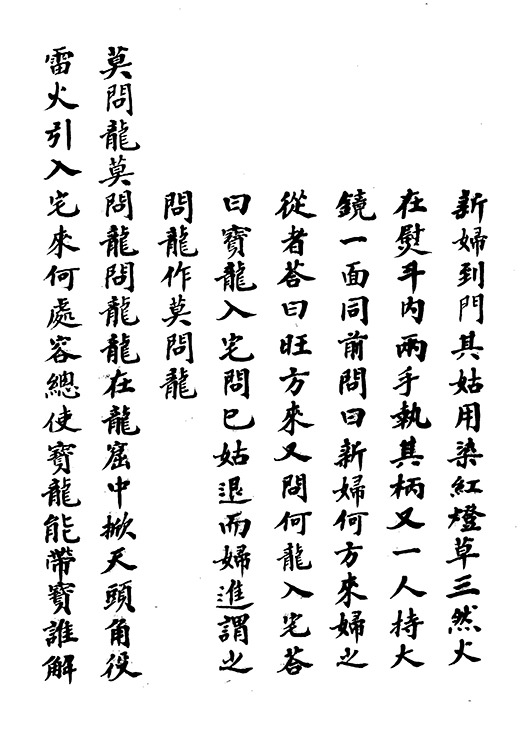 新婦到門其姑用染紅燈草三然火
在熨斗内兩手執其柄又一人持大
鏡一面同前問曰新婦何方來婦之
從者荅曰旺方來又問何龍入宅荅
曰寳龍入宅問已姑退而婦進謂之
問龍作莫問龍
莫問龍莫問龍問龍龍在龍窟中掀天頭角役
雷火引入宅來何處容總使寳龍能帶寳誰解